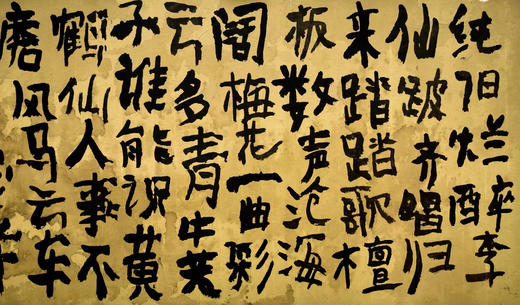 纯阳烂醉李
仙跛齐唱归
来踏踏歌檀
板数声沧海
阔梅花一曲彩
云多青牛芙
子谁能识黄
鹤仙人事不
唐风马云车